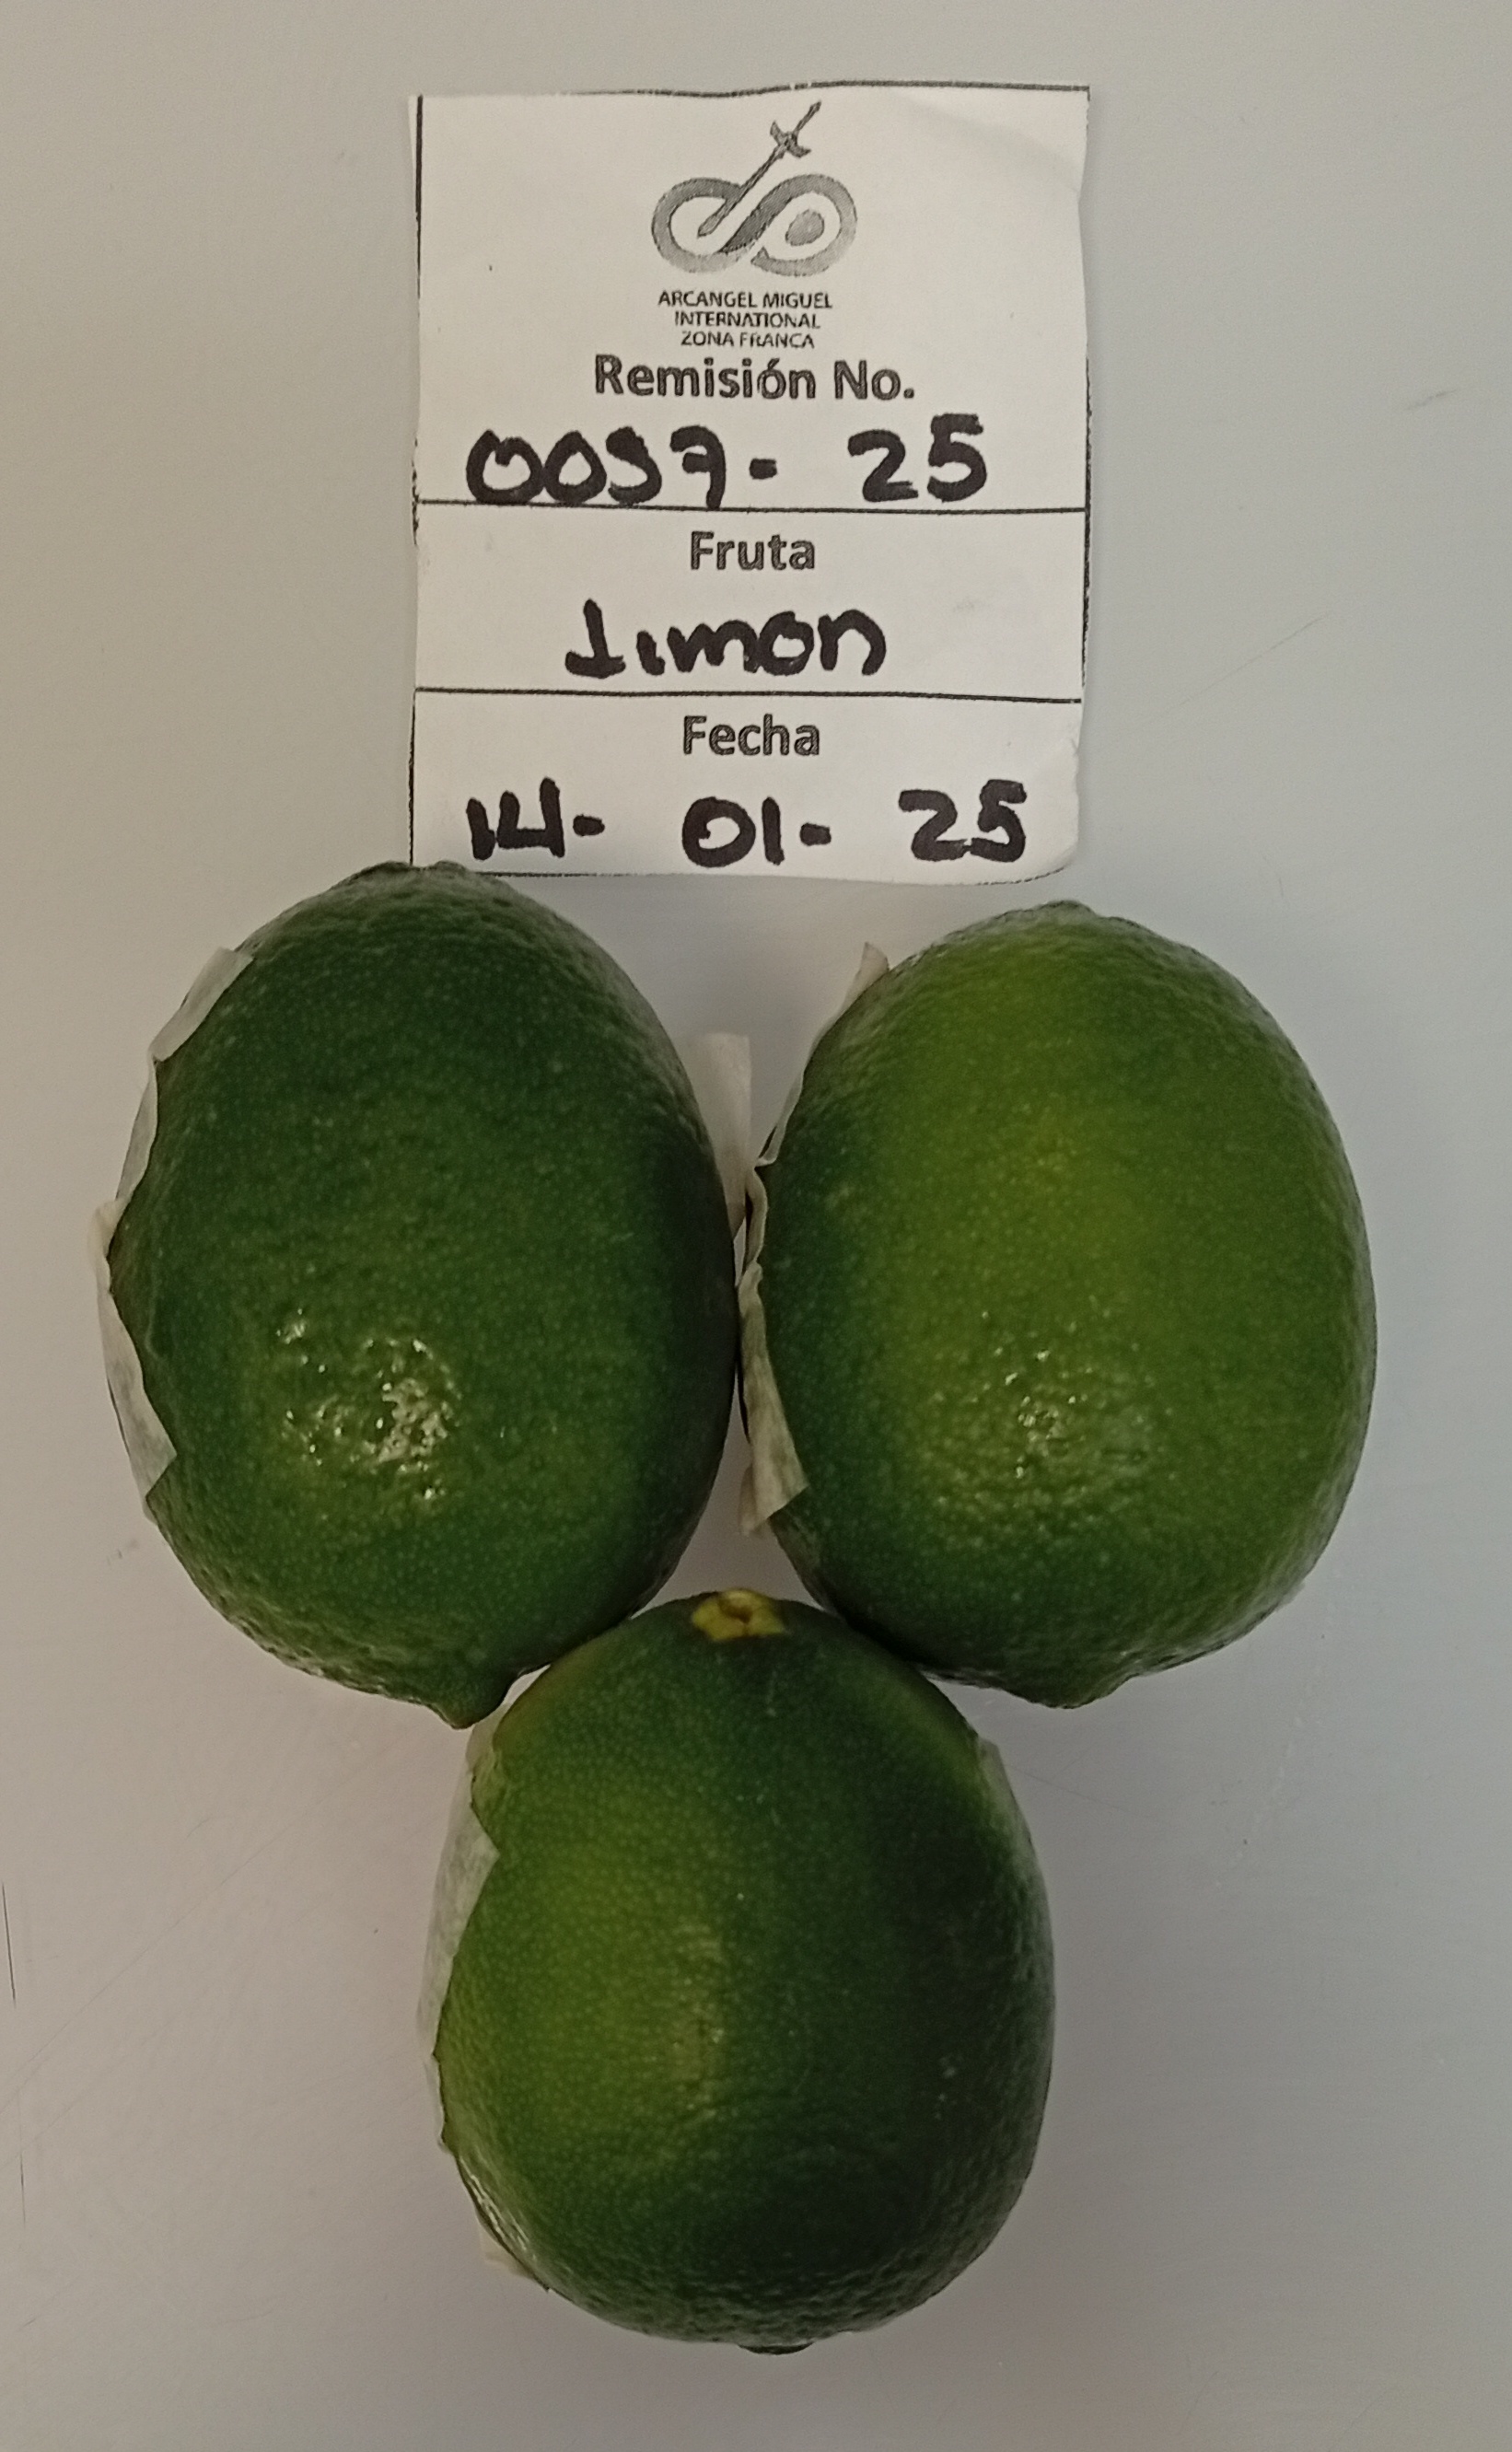 ARCANGEL MIGUEL
INTERNATIONAL
ZONA FRANCA
Remisión No.
0097- 25
Fruta
Limon
Fecha
14- 01- 25